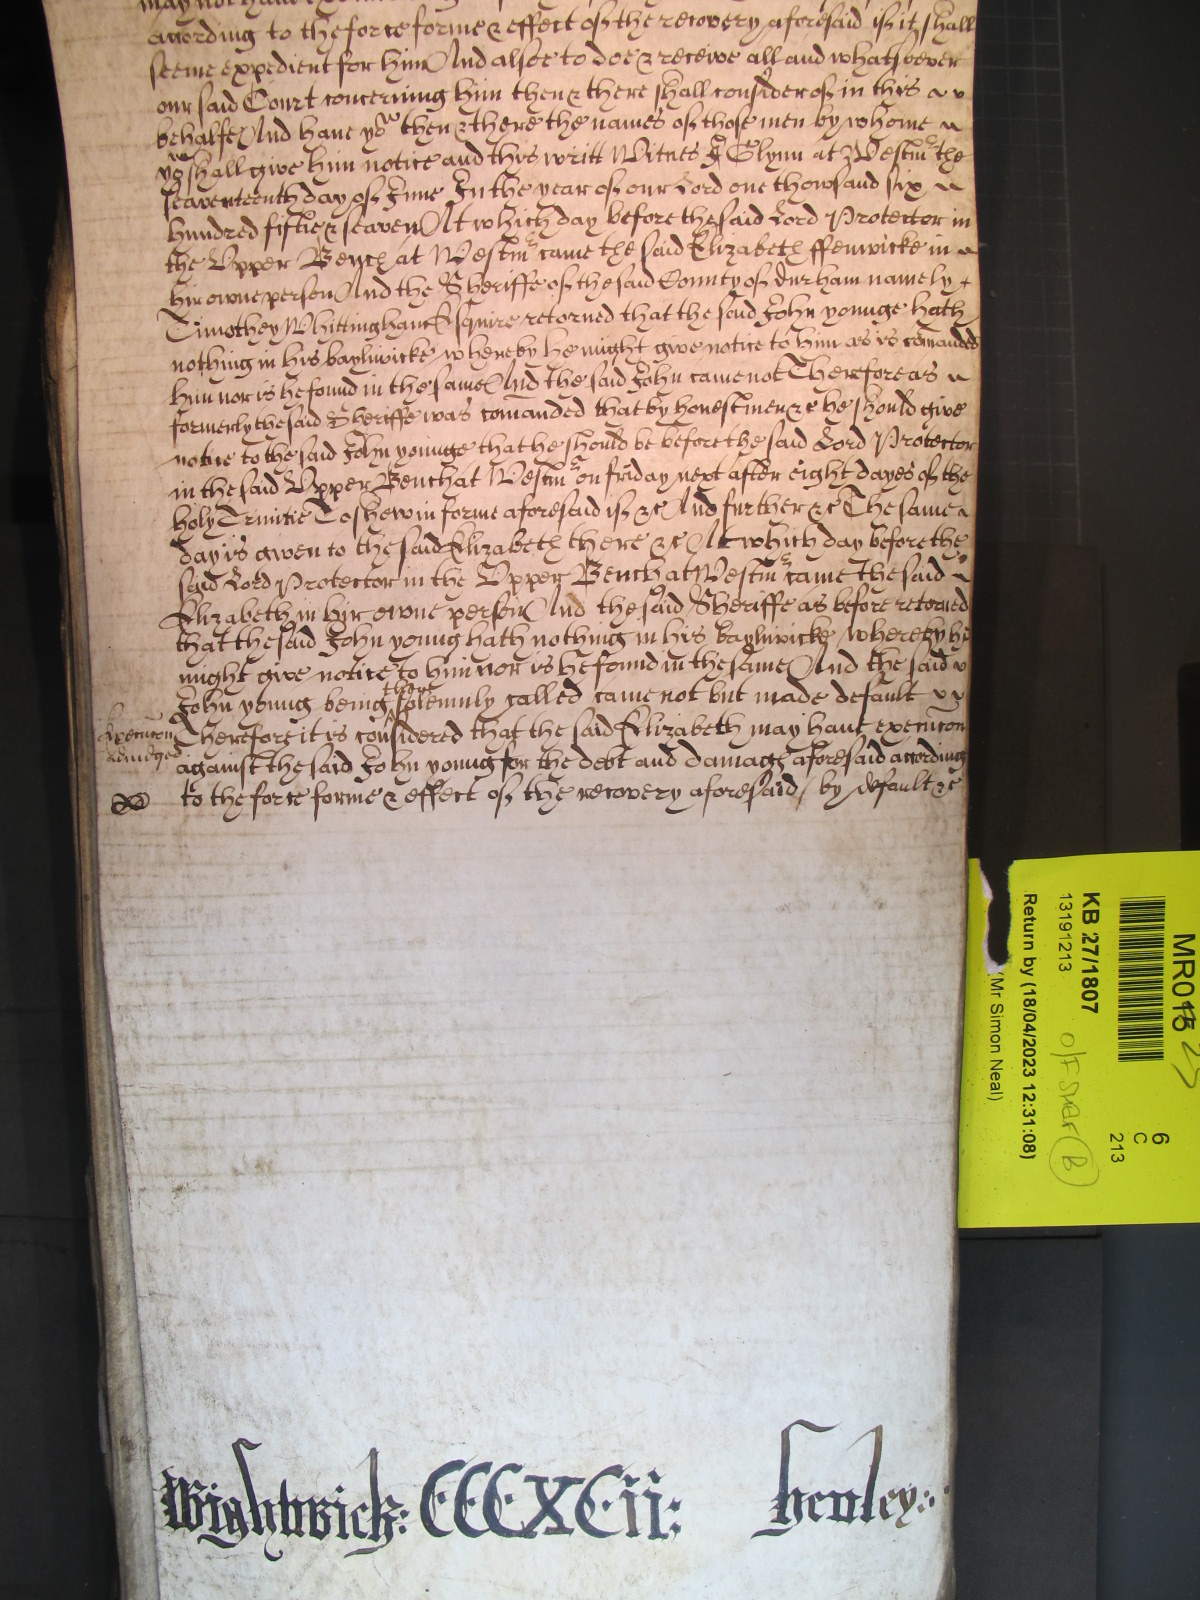 may not have
according to the force forme & effect of the recovery aforesaid if it shall
seeme expedient for him And alsoe to doe & receive all and whatsoever
our said Court concerning him then & there shall consider of in this
behalfe And have yor then & there the names of those men by whome
you shall give him notice and this writt Witnes J Glynn at Westmr the
seaventeenth day of June In the year of our Lord one thowsand six
hundred fiftie & seaven At which day before the said Lord Protector in
the Upper Bench at Westmr came the said Elizabeth ffenwicke in
hir owne person And the Sheriffe of the said County of Durham namely
Timothey Whittingham Esquire returned that the said John younge hath
nothing in his bayliwicke whereby he might give notice to him as is comanded
him nor is he found in the same And the said John came not Therefore as
formerly the said Sheriffe was comanded that by honest men &c he should give
notice to the said John younge that he should be before the said Lord Protector
in the said Upper Bench at Westmr on friday next after eight dayes of the
holy Trinitie To shew in forme aforesaid if &c And further &c The same
day is given to the said Elizabeth there &c At which day before the
said Lord Protector in the Upper Bench at Westmr came the said
Elizabeth in hir owne person And the said Sheriffe as before retorned
that the said John young hath nothing in his bayliwicke whereby he
might give notice to him nor is he found in the same And the said
John young being there solemnly called came not but made default
Therefore it is considered that the said Elizabeth may have execucon
against the said John young for the debt and damage aforesaid according
to the force forme & effect of the recovery aforesaid by default &c
Execucon
adiudged
Wightwick: CCCXCii: henley:
MR016
6
C
213
KB 27/1807
13191213
O/F Shar B
Return by (18/04/2023 12:31:08)
(Mr Simon Neal)